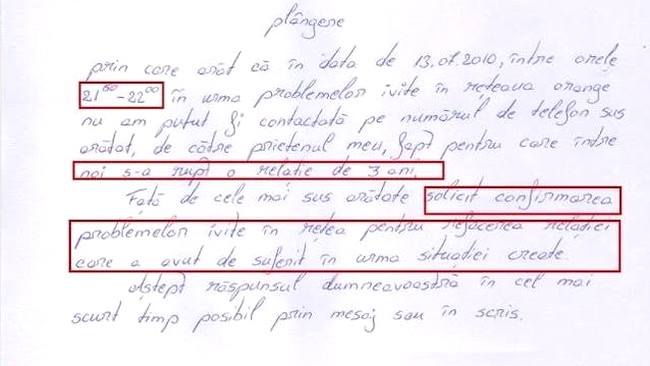 plângere
prin care arăt că în data de 13.07.2010, între orele
21⁰⁰-22⁰⁰ în urma problemelor ivite în rețeaua orange
nu am putut fi contactată pe numărul de telefon sus
arătat, de către prietenul meu, fapt pentru care între
noi s-a rupt o relație de 3 ani.
Față de cele mai sus arătate solicit confirmarea
problemelor ivite în rețea pentru refacerea relației
care a avut de suferit în urma situației create.
Aștept răspunsul dumneavoastră în cel mai
scurt timp posibil prin mesaj sau în scris.